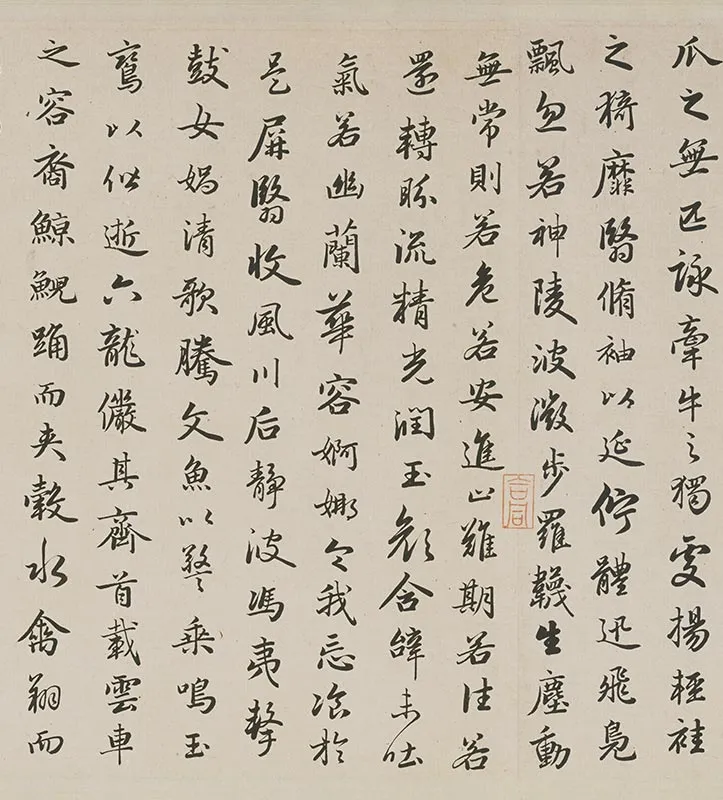 瓜之無匹詠牽牛之獨處揚輕袿
之猗靡翳脩袖以延佇體迅飛鳧
飄忽若神陵波微步羅韤生塵動
無常則若危若安進止難期若往若
還轉眄流精光潤玉顏含辭未吐
氣若幽蘭華容婀娜令我忘飡於
是屏翳收風川后靜波馮夷擊
鼓女媧清歌騰文魚以警乘鳴玉
鸞以偕逝六龍儼其齊首載雲車
之容裔鯨鯢踊而夾轂水禽翔而